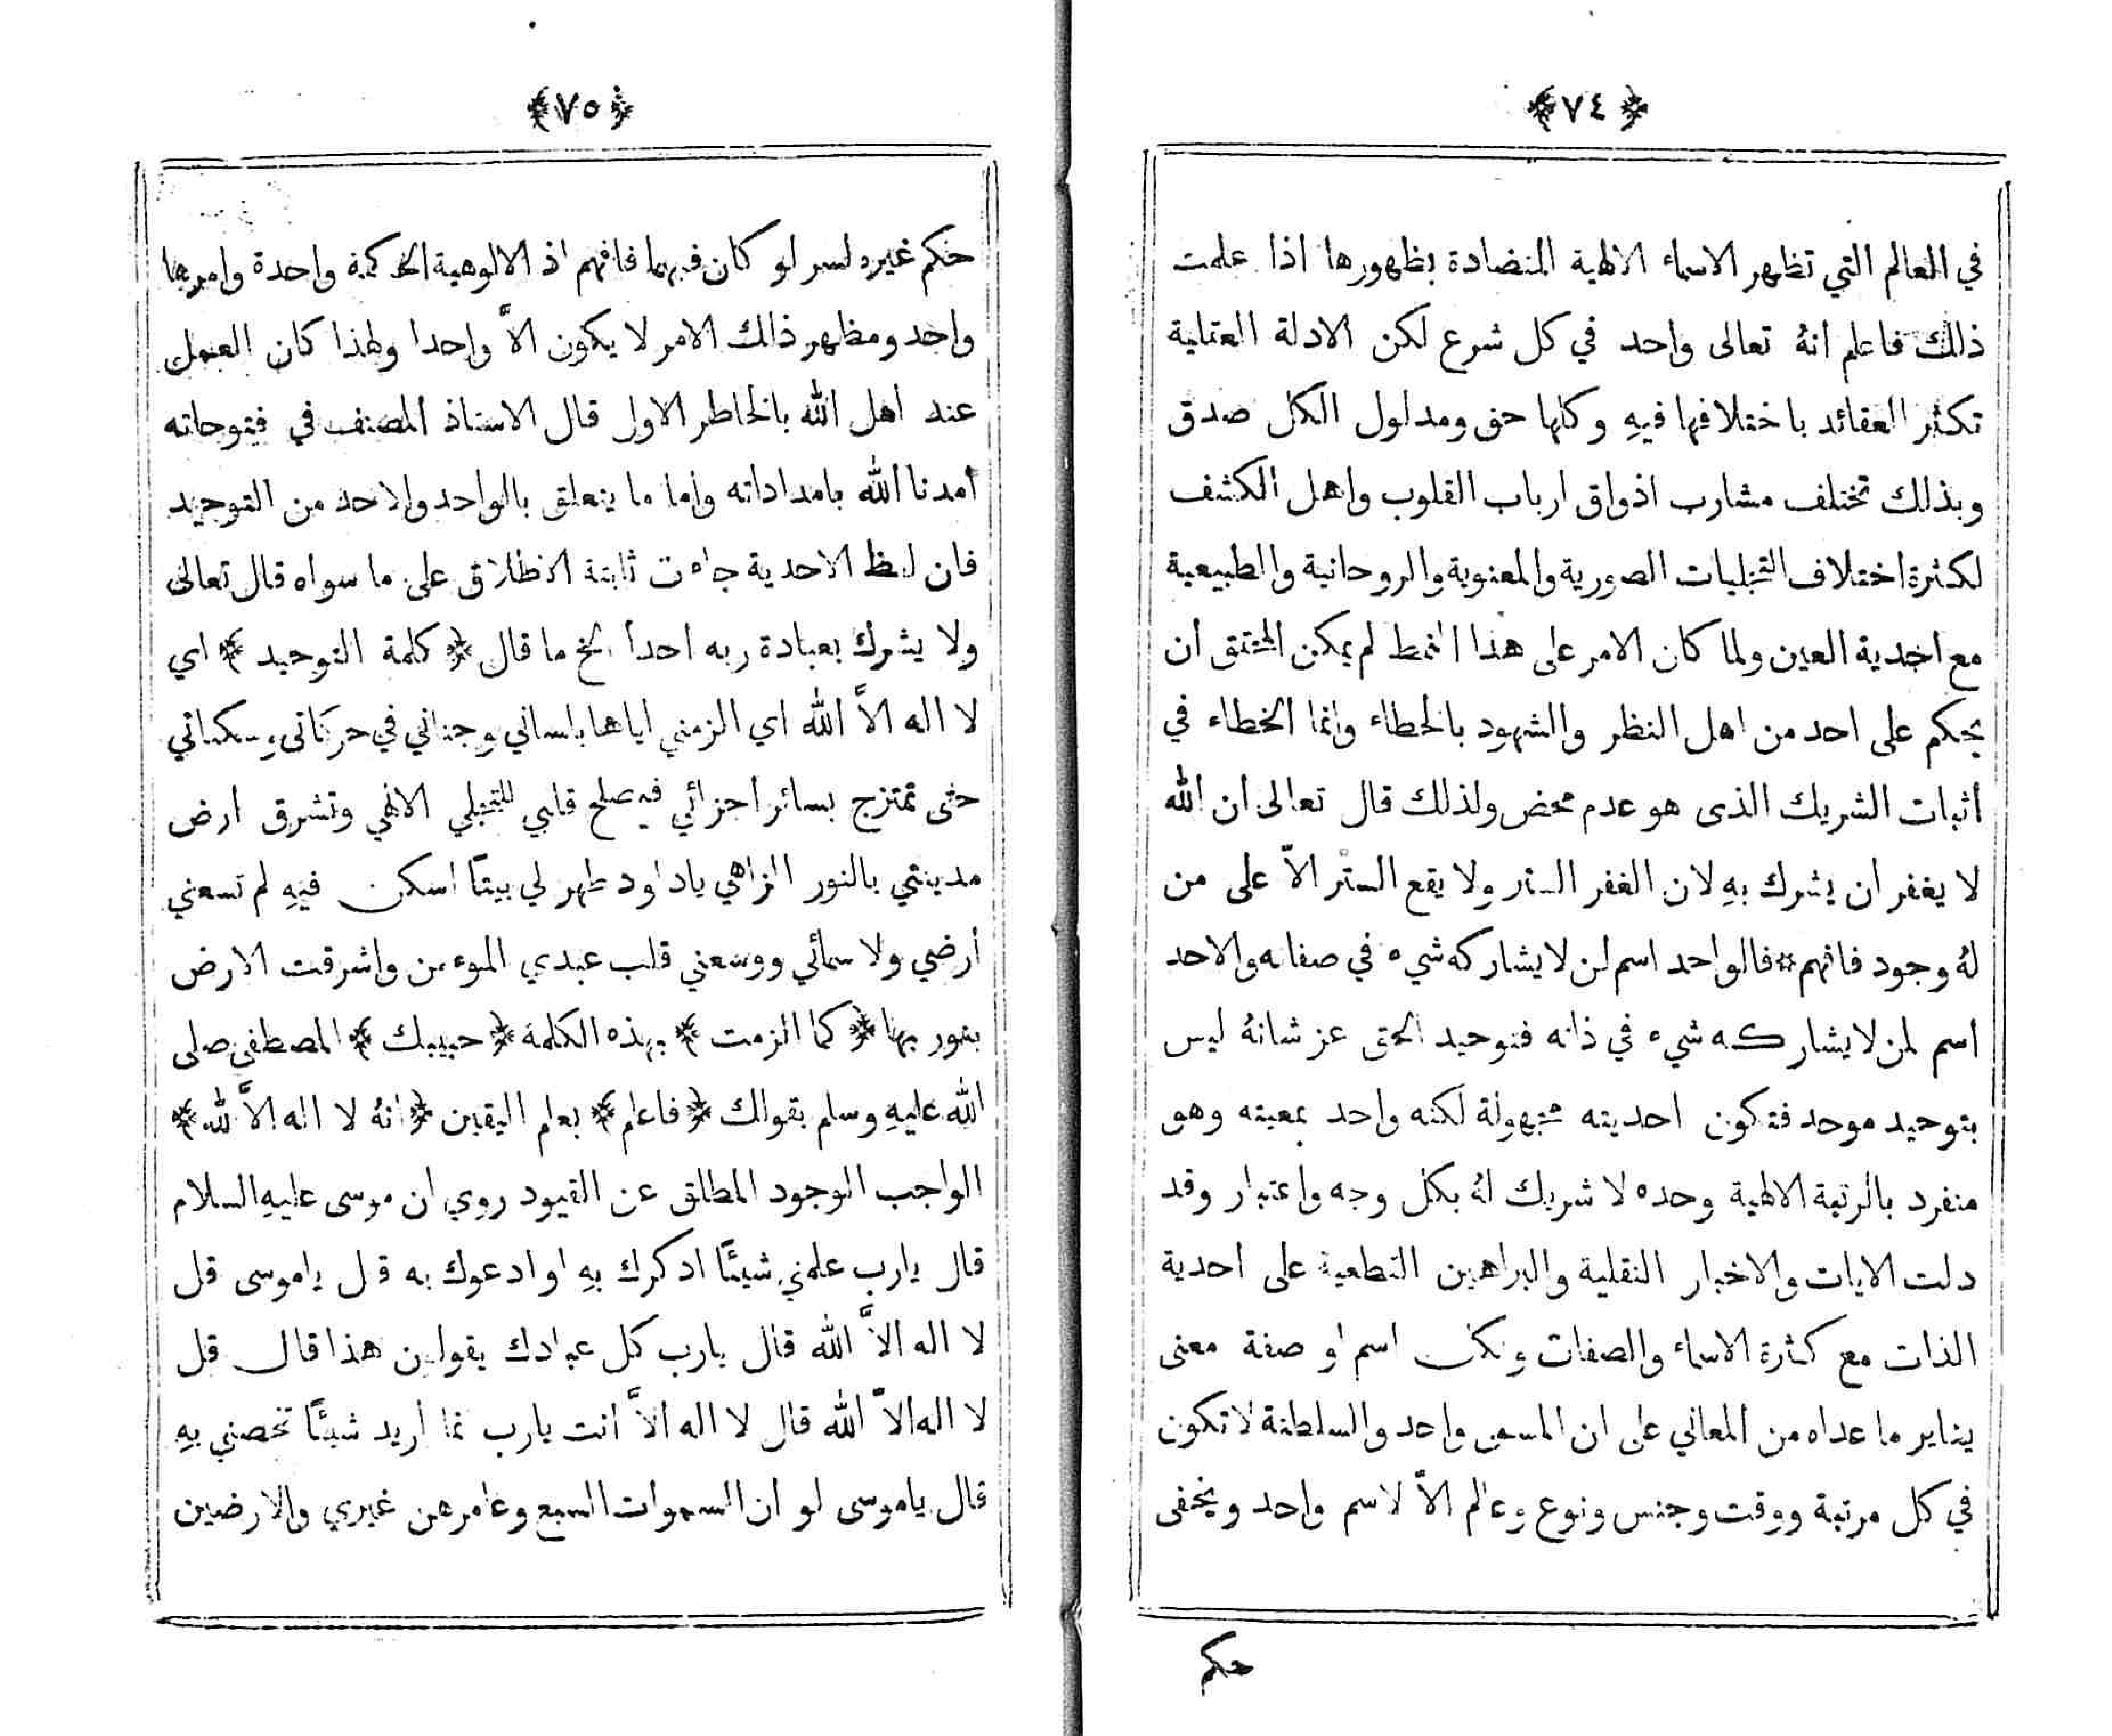 ﴿٧٤﴾
في العالم التي تظهر الاسماء الالهية المتضادة بظهورها اذا علمت
ذلك فاعلم انهُ تعالى واحد في كل شرع لكن الادلة العقلية
تكثر العقائد باختلافها فيهِ وكلها حق ومدلول الكل صدق
وبذلك تختلف مشارب اذواق ارباب القلوب واهل الكشف
لكثرة اختلاف التجليات الصورية والمعنوية والروحانية والطبيعية
مع احدية العين ولما كان الامر على هذا النمط لم يمكن المحقق أن
يحكم على احد من اهل النظر والشهود بالخطاء وانما الخطاء في
أثبات الشريك الذى هو عدم محض ولذلك قال تعالى ان الله
لا يغفر ان يشرك بهِ لان الغفر الستر ولا يقع الستر الاّ على من
لهُ وجود فافهم فالواحد اسم لمن لا يشاركه شيء في صفاته والاحد
اسم لمن لا يشاركه شيء في ذاته فتوحيد الحق عز شانهُ ليس
بتوحيد موحد فتكون احديته مجهولة لكنه واحد بمعيته وهو
منفرد بالرتبة الالهية وحده لا شريك لهُ بكل وجه واعتبار وقد
دلت الايات والاخبار النقلية والبراهين القطعية على احدية
الذات مع كثرة الاسماء والصفات ولكل اسم او صفة معنى
يغاير ما عداه من المعاني على ان المسمى واحد والسلطانة لا تكون
في كل مرتبة ووقت وجنس ونوع وعالم الاّ لاسم واحد ويخفى
حكم
﴿٧٥﴾
حكم غيره لسر لو كان فيهما فافهم اذ الالوهية الحاكمة واحدة وامرها
واحد ومظهر ذلك الامر لا يكون الاَّ واحدا ولهذا كان العمل
عند اهل الله بالخاطر الاول قال الاستاذ المصنف في فتوحاته
أمدنا الله بامداداته واما ما يتعلق بالواحد والاحد من التوحيد
فان لفظ الاحدية جاءت ثابتة الاطلاق على ما سواه قال تعالى
ولا يشرك بعبادة ربه احداً الخ ما قال ﴿كلمة التوحيد﴾ اي
لا اله الاَّ الله اي الزمني اياها بلساني وجناني في حركاتى وسكناتي
حتى تمتزج بسائر اجزائي فيصلح قلبي للتجلي الالهي وتشرق ارض
مدينتي بالنور الزاهي ياداود طهر لي بيتًا اسكن فيهِ لم تسعني
أرضي ولا سمائي ووسعني قلب عبدي الموءمن واشرقت الارض
بنور ربها ﴿كما الزمت﴾ بهذه الكلمة ﴿حبيبك﴾ المصطفى صلى
الله عليهِ وسلم بقولك ﴿فاعلم﴾ بعلم اليقين ﴿انهُ لا اله الاَّ الله﴾
الواجب الوجود المطلق عن القيود روي ان موسى عليهِ السلام
قال يارب علمني شيئًا اذكرك بهِ او ادعوك به قال ياموسى قل
لا اله الاَّ الله قال يارب كل عبادك يقولون هذا قال قل
لا اله الاَّ الله قال لا اله الاَّ انت يارب انما أريد شيئًا تخصني بهِ
قال ياموسى لو ان السموات السبع وعامرهن غيري والارضين